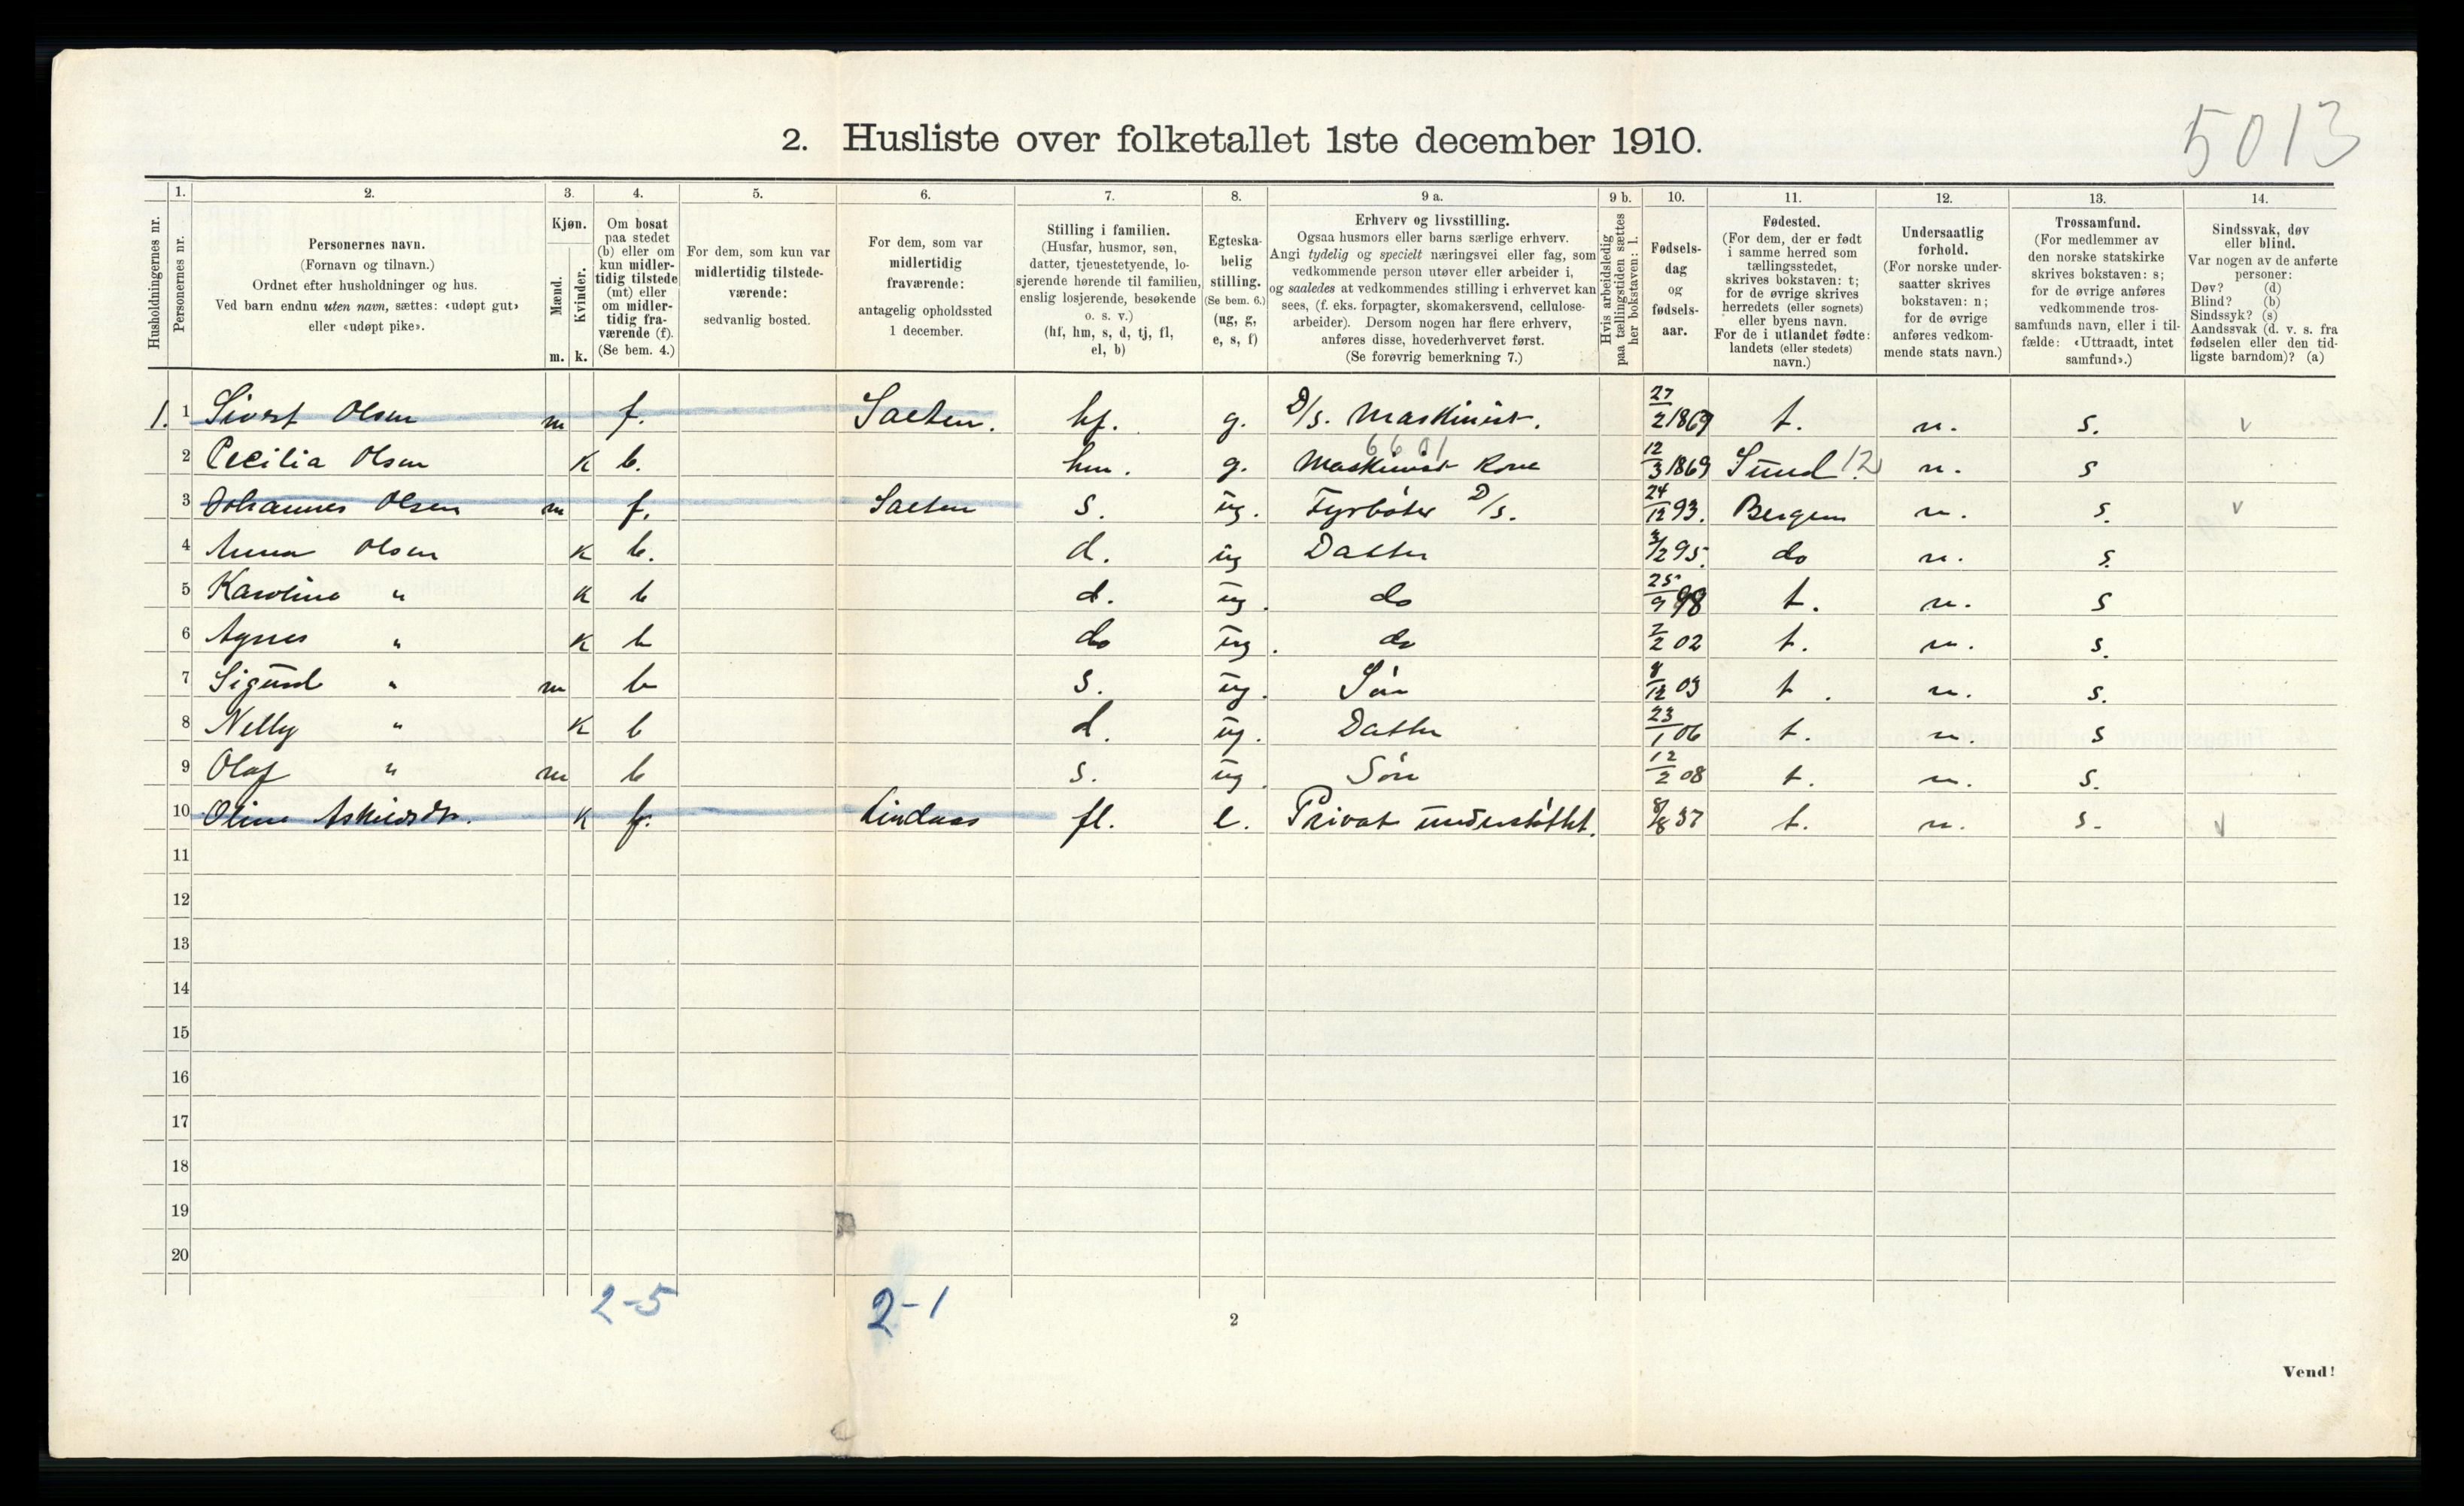 5013
2. Husliste over folketallet 1ste december 1910.
Husholdningernes nr.
1.
Personernes nr.
2.
Personernes navn.
(Fornavn og tilnavn.)
Ordnet efter husholdninger og hus.
Ved barn endnu uten navn, sættes: «udøpt gut»
eller «udøpt pike».
3.
Kjøn.
Mænd.
m.
Kvinder.
k.
4.
Om bosat
paa stedet
(b) eller om
kun midler-
tidig tilstede
(mt) eller
om midler-
tidig fra-
værende (f).
(Se bem. 4.)
5.
For dem, som kun var
midlertidig tilstede-
værende:
sedvanlig bosted.
6.
For dem, som var
midlertidig
fraværende:
antagelig opholdssted
1 december.
7.
Stilling i familien.
(Husfar, husmor, søn,
datter, tjenestetyende, lo-
sjerende hørende til familien,
enslig losjerende, besøkende
o. s. v.)
(hf, hm, s, d, tj, fl,
el, b)
8.
Egteska-
belig
stilling.
(Se bem. 6.)
(ug, g,
e, s, f)
9 a.
Erhverv og livsstilling.
Ogsaa husmors eller barns særlige erhverv.
Angi tydelig og specielt næringsvei eller fag, som
vedkommende person utøver eller arbeider i,
og saaledes at vedkommendes stilling i erhvervet kan
sees, (f. eks. forpagter, skomakersvend, cellulose-
arbeider). Dersom nogen har flere erhverv,
anføres disse, hovederhvervet først.
(Se forøvrig bemerkning 7.)
9 b.
Hvis arbeidsledig
paa tællingstiden sættes
her bokstaven: l.
10.
Fødsels-
dag
og
fødsels-
aar.
11.
Fødested.
(For dem, der er født
i samme herred som
tællingsstedet,
skrives bokstaven: t;
for de øvrige skrives
herredets (eller sognets)
eller byens navn.
For de i utlandet fødte:
landets (eller stedets)
navn.)
12.
Undersaatlig
forhold.
(For norske under-
saatter skrives
bokstaven: n;
for de øvrige
anføres vedkom-
mende stats navn.)
13.
Trossamfund.
(For medlemmer av
den norske statskirke
skrives bokstaven: s;
for de øvrige anføres
vedkommende tros-
samfunds navn, eller i til-
fælde: «Uttraadt, intet
samfund».)
14.
Sindssvak, døv
eller blind.
Var nogen av de anførte
personer:
Døv? (d)
Blind? (b)
Sindssyk? (s)
Aandssvak (d. v. s. fra
fødselen eller den tid-
ligste barndom)? (a)
1. 1 Sivert Olsen m f. Saeten. hf. g. D/s. Maskinist. 27/2 1869 t. n. s. v
6601
2 Cecilia Olsen K b. hm. g. Maskinist Kone 12/3 1869 Sund 12 n. s
3 Johannes Olsen m f. Saeten s. ug. Fyrbøter D/s. 24/12 93. Bergen n. s. v
4 Anna Olsen K b. d. ug Datter 3/2 95. do n. s.
5 Karoline " K b d. ug. do 25/9 98 t. n. s
6 Agnes " K b do ug. do 2/2 02 t. n. s.
7 Sigurd " m b s. ug. Søn 8/12 03 t. n. s.
8 Nelly " K b d. ug. Datter 23/1 06 t. n. s
9 Olaf " m b s. ug. Søn 12/2 08 t. n. s.
10 Oline K f. Lindaas fl. e. Privat understøttet. 8/8 37 t. n. s. v
11
12
13
14
15
16
17
18
19
20
2-5
2-1
2
Vend!